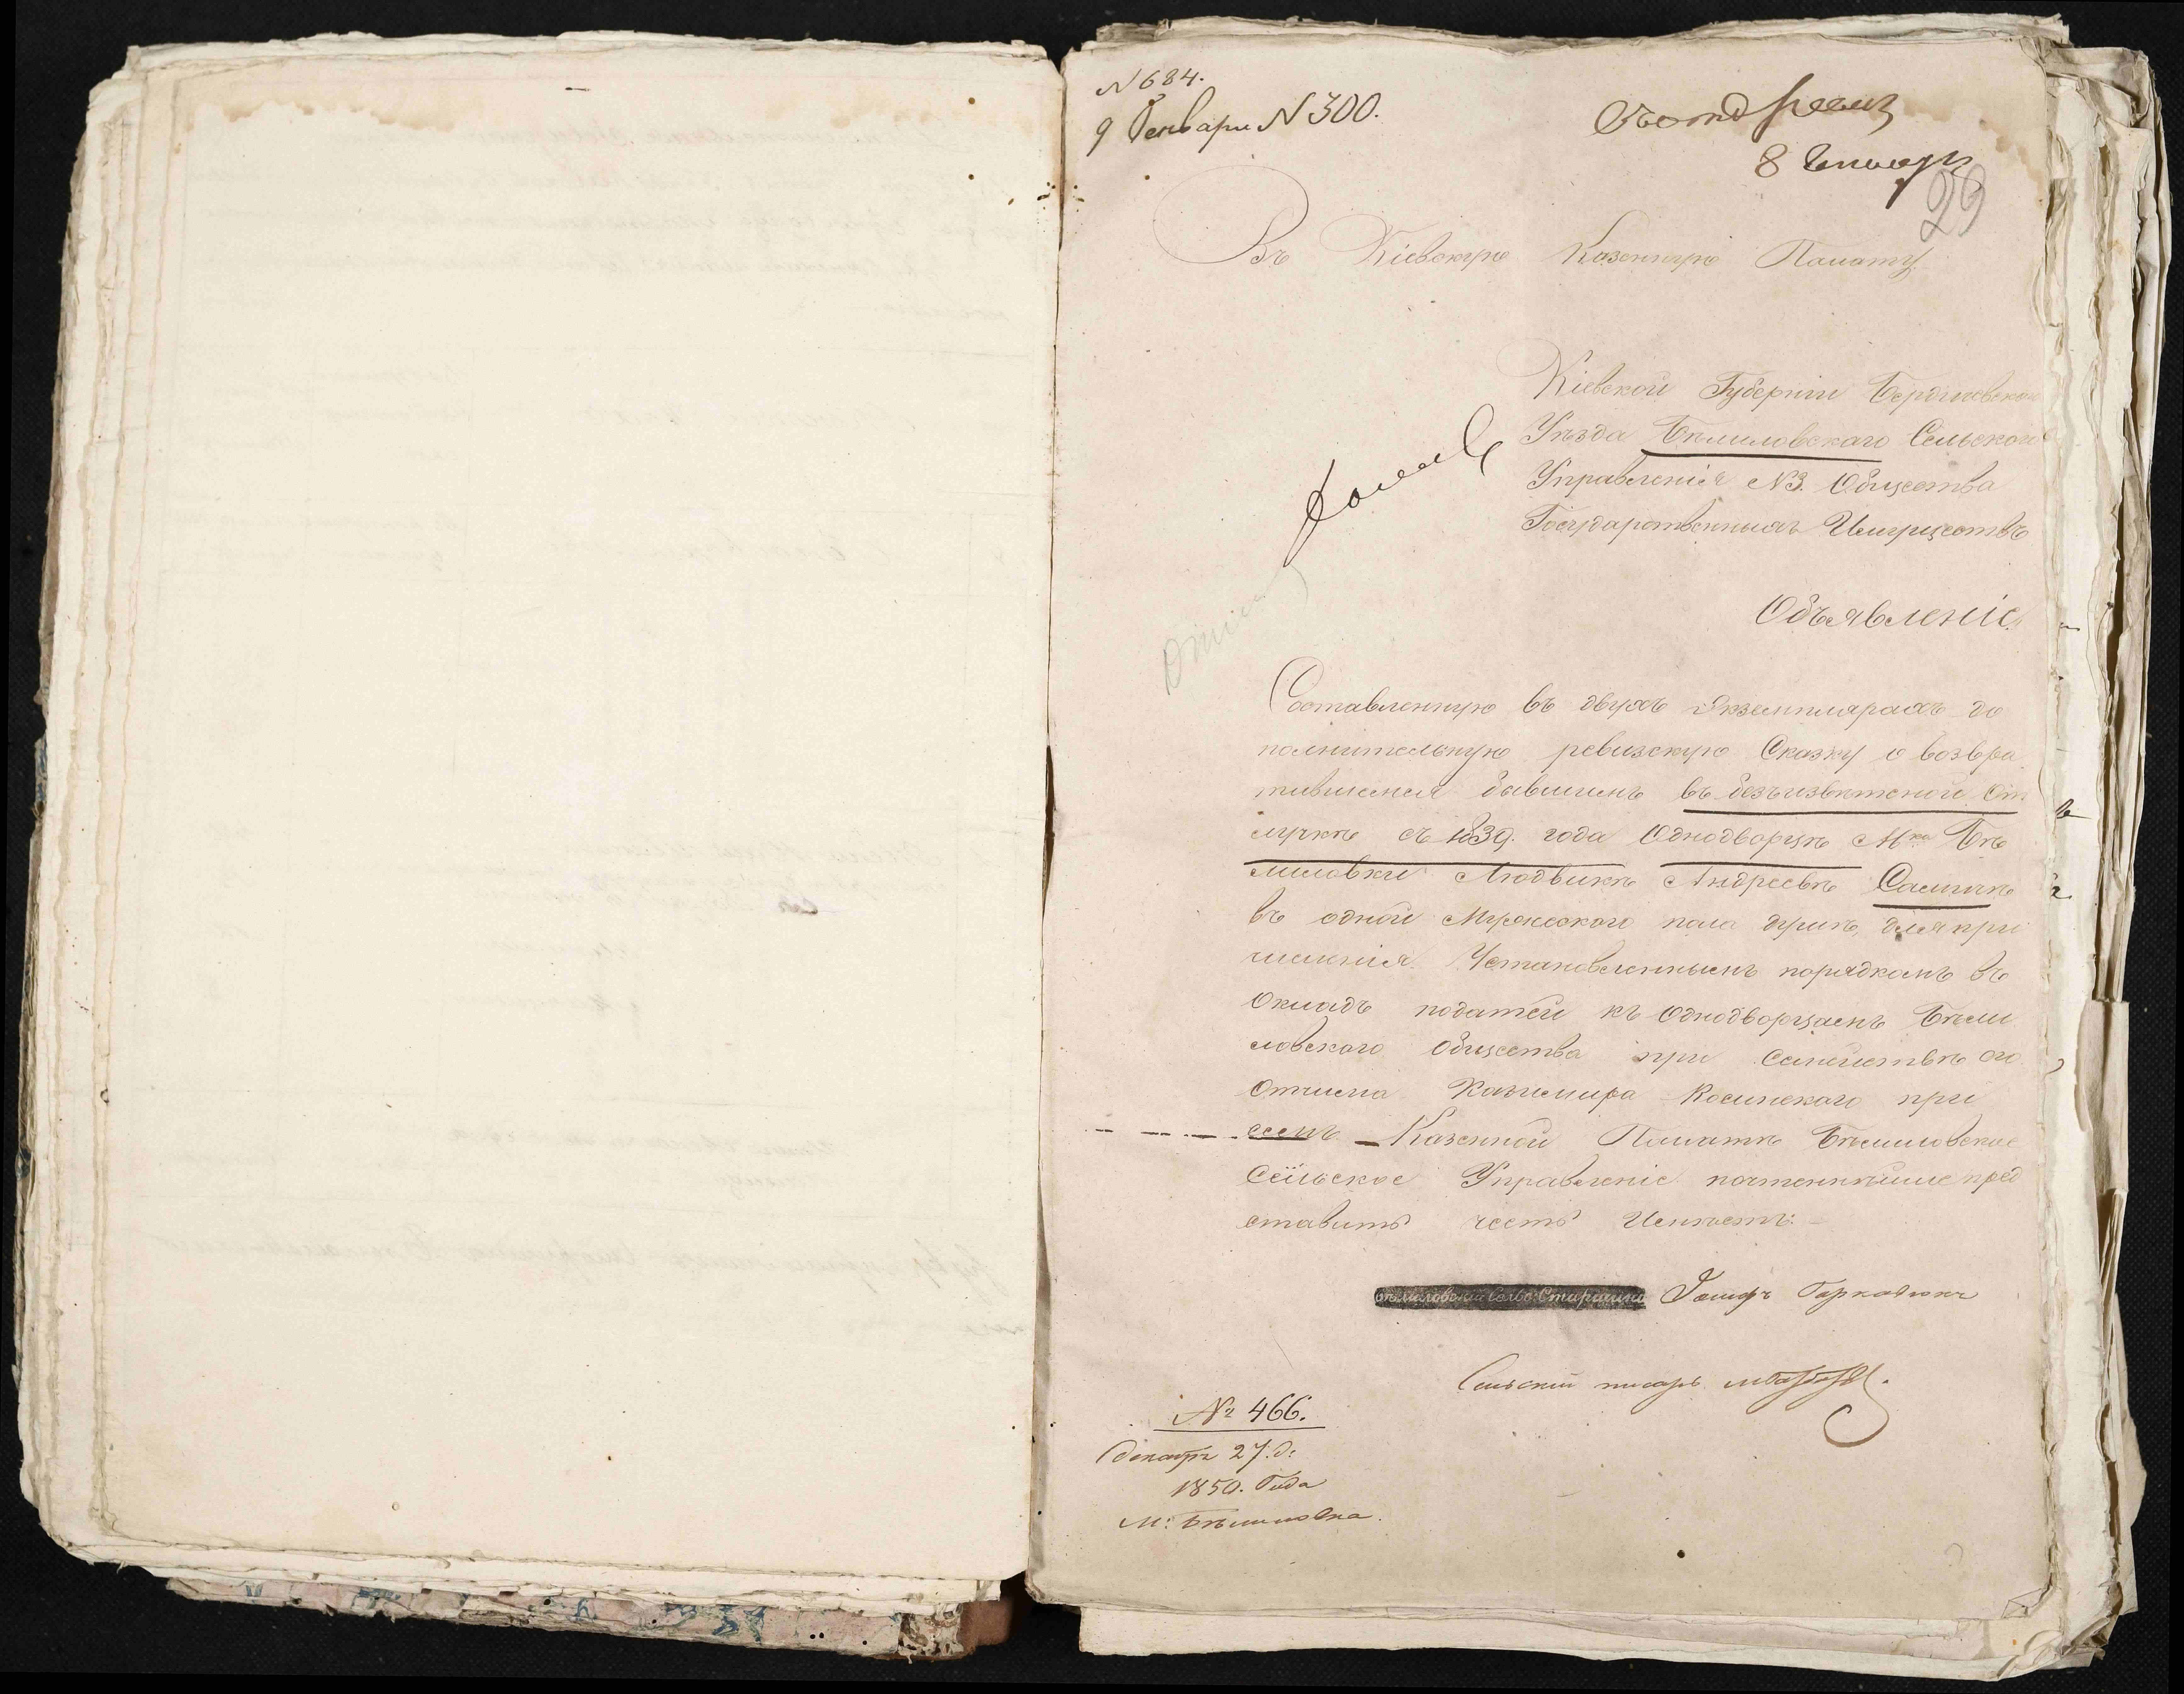 N 684.
9 Генваря N 300.
8 Генваря
29
Въ Кіевскую Казенную Палату
Кіевской Губерніи Бердичевскаго
Уѣзда Бѣлиловскаго Сельскаго
Управленія N3. Общества
Государственныхъ Имуществъ
Объявленіе
Составленную въ двухъ Экземплярахъ до
полнительную ревизскую Сказку о возвра
тившемся бывшемъ въ безъизвѣстной От
лучкѣ съ 1839. года Однодворцѣ Мка Бѣ
лиловки Людвикѣ Андреевѣ
въ одной Мужескаго пола душѣ, для при
численія Установленнымъ порядкомъ въ
Окладъ податей къ Однодворцамъ Бѣли
ловскаго Общества при Семействѣ его
Отчима Казимира Косинскаго при
семъ Казенной Палатѣ Бѣлиловское
Сельское Управленіе почтеннѣйше пред
ставить честь Имѣетъ:
Бѣлиловскій Сельс: Старшина
Сельскій писарь
№ 466.
Декабря 27. д:
1850. Года
М: Бѣлиловка.